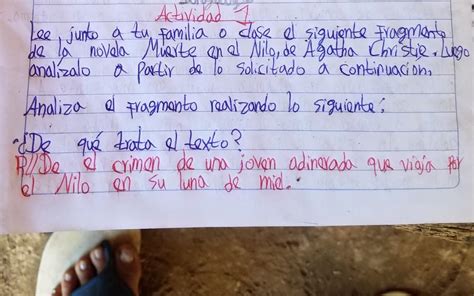 Actividad 1
Lee, junto a tu familia o clase el siguiente fragmento
de la novela Muerte en el Nilo, de Agatha Christie. Luego
analízalo a partir de lo solicitado a continuación.
Analiza el fragmento realizando lo siguiente:
¿De qué trata el texto?
R//De el crimen de una joven adinerada que viaja por
el Nilo en su luna de miel.